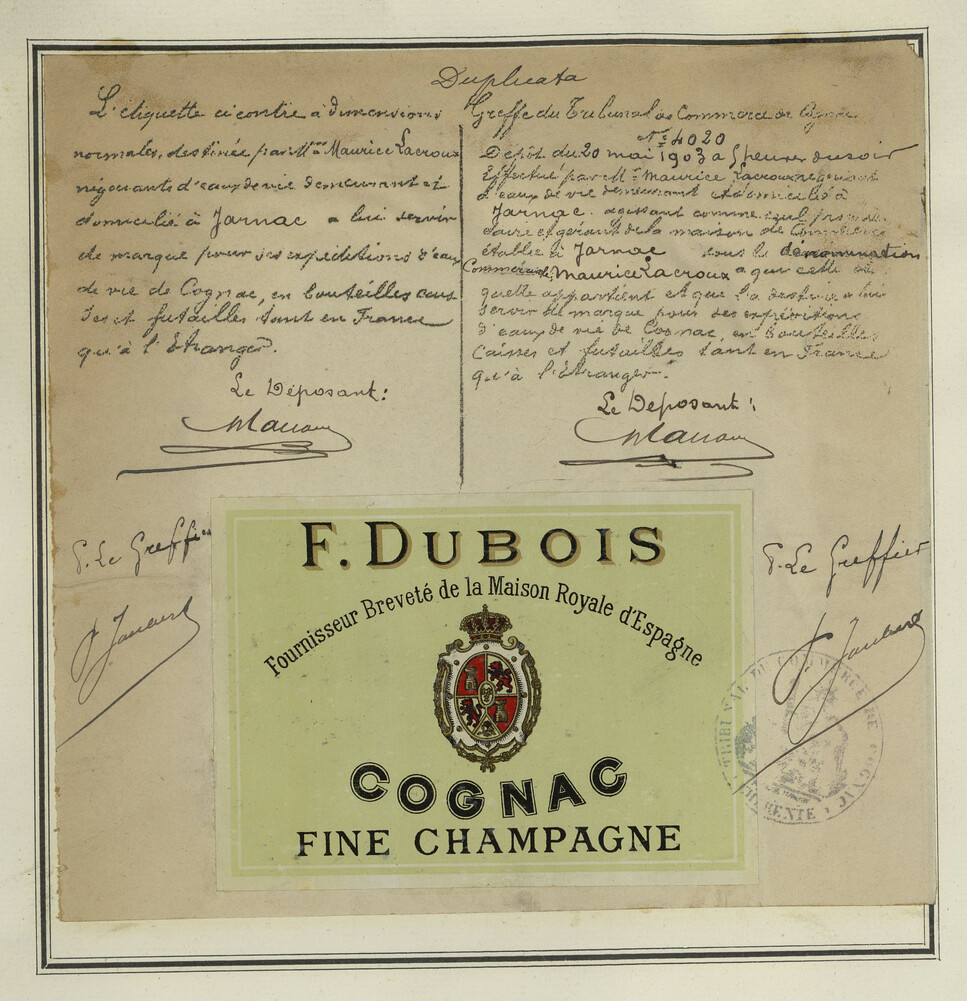 Duplicata
L'étiquette ci contre à dimensions
normales, destinée par Mr Maurice Lacroux
négociants d'eaux de vie demeurant et
domicilié à Jarnac a lui servir
de marque pour ses expéditions d'eaux
de vie de Cognac, en bouteilles cais-
ses et futailles tant en France
qu'à l'Etranger.
Le Déposant:
Greffe du Tribunal de Commerce de Cognac
No 4020
Dépôt du 20 mai 1903 à 5 heures du soir
Effectué par Mr Maurice Lacroux négociant
d'eaux de vie demeurant et domicilié à
Jarnac agissant comme seul proprié-
taire et gérant de la maison de Commerce
établie à Jarnac sous la dénomination
Commerciale, Maurice Lacroux a que cette éti-
quette appartient et que l'a destinée a lui
servir de marque pour ses expéditions
d'eaux de vie de Cognac, en bouteilles
caisses et futailles tant en France
qu'à l'étranger.
Le Déposant:
P. Le Greffier
P. Le Greffier
F. DUBOIS
Fournisseur Breveté de la Maison Royale d'Espagne
COGNAC
FINE CHAMPAGNE
TRIBUNAL DU COMMERCE DE COGNAC
CHARENTE